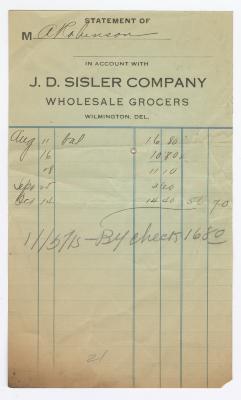 STATEMENT OF
M A Robinson
IN ACCOUNT WITH
J. D. SISLER COMPANY
WHOLESALE GROCERS
WILMINGTON, DEL.
Aug 11 bal 16 80
16 10 80
18 11 10
Sept
Oct 14 14 40 70
11/5/15 - By check 1680
21